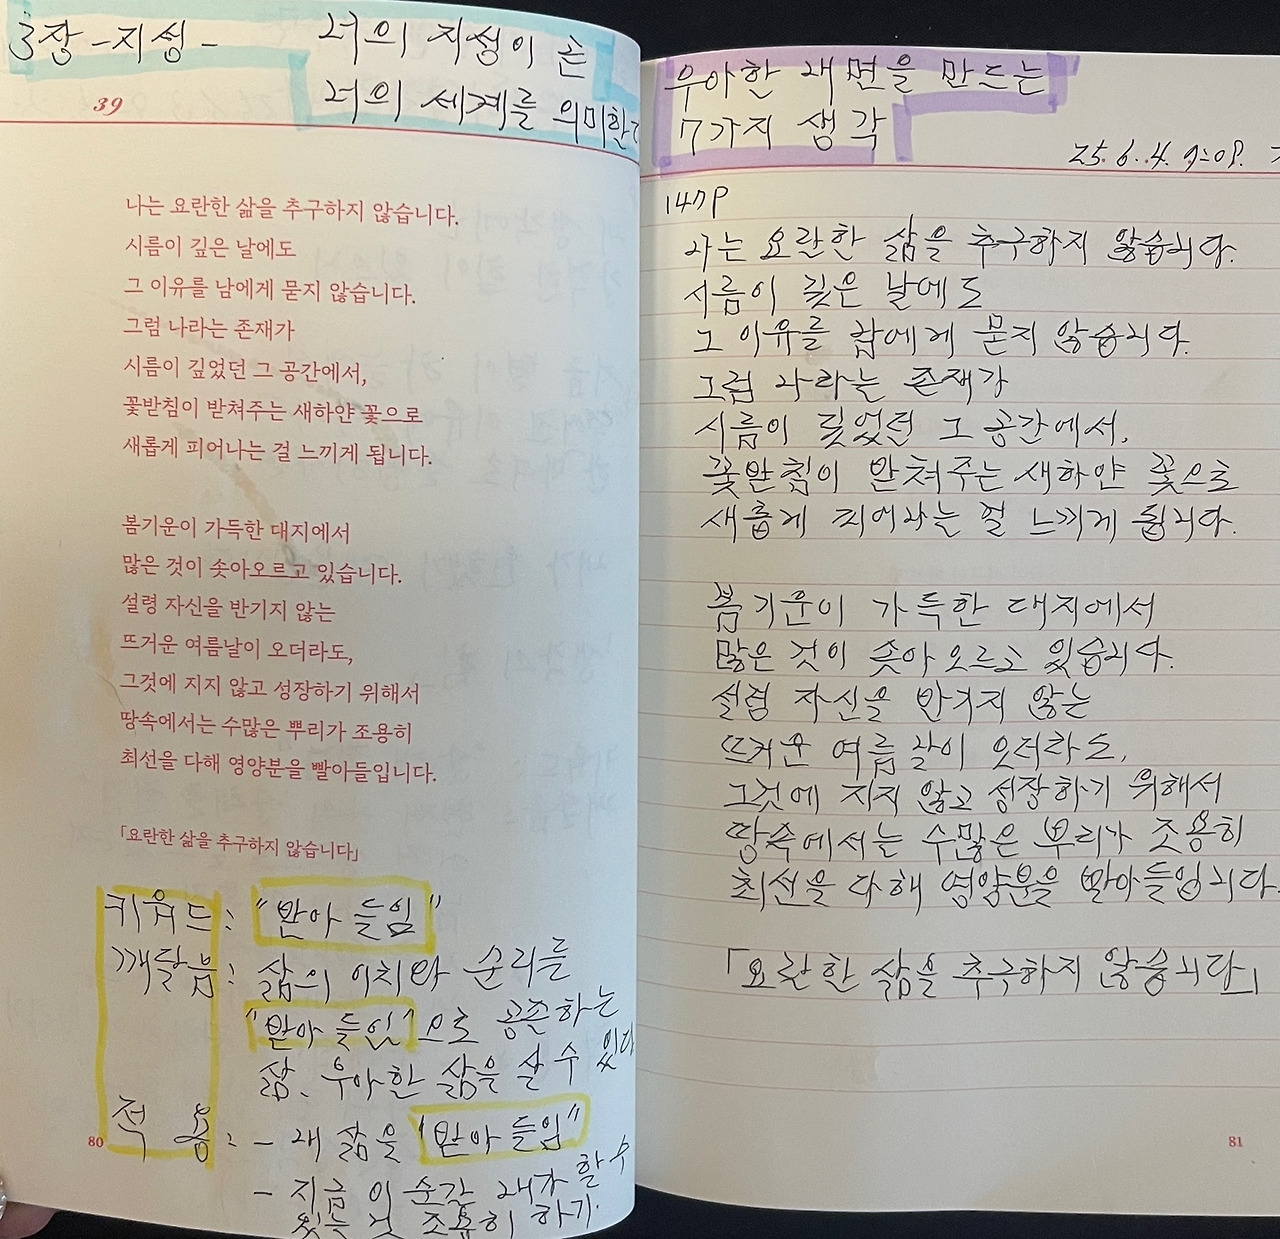 3장 -지성-
너의 지성이 곧
너의 세계를 의미한다
39
나는 요란한 삶을 추구하지 않습니다.
시름이 깊은 날에도
그 이유를 남에게 묻지 않습니다.
그럼 나라는 존재가
시름이 깊었던 그 공간에서,
꽃받침이 받쳐주는 새하얀 꽃으로
새롭게 피어나는 걸 느끼게 됩니다.
봄기운이 가득한 대지에서
많은 것이 솟아오르고 있습니다.
설령 자신을 반기지 않는
뜨거운 여름날이 오더라도,
그것에 지지 않고 성장하기 위해서
땅속에서는 수많은 뿌리가 조용히
최선을 다해 영양분을 빨아들입니다.
「요란한 삶을 추구하지 않습니다」
키워드: "받아들임"
깨달음: 삶의 이치와 순리를
"받아들임"으로 공존하는
삶, 우아한 삶을 살 수 있다
적용: - 내 삶을 "받아들임"
- 지금 이 순간 내가 할 수
있는 것 조용히 하기.
80
우아한 내면을 만드는
7가지 생각
25. 6. 4.
147p
나는 요란한 삶을 추구하지 않습니다.
시름이 깊은 날에도
그 이유를 남에게 묻지 않습니다.
그럼 나라는 존재가
시름이 깊었던 그 공간에서,
꽃받침이 받쳐주는 새하얀 꽃으로
새롭게 피어나는 걸 느끼게 됩니다.
봄기운이 가득한 대지에서
많은 것이 솟아오르고 있습니다.
설령 자신을 반기지 않는
뜨거운 여름날이 오더라도,
그것에 지지 않고 성장하기 위해서
땅속에서는 수많은 뿌리가 조용히
최선을 다해 영양분을 빨아들입니다.
「요란한 삶을 추구하지 않습니다」
81